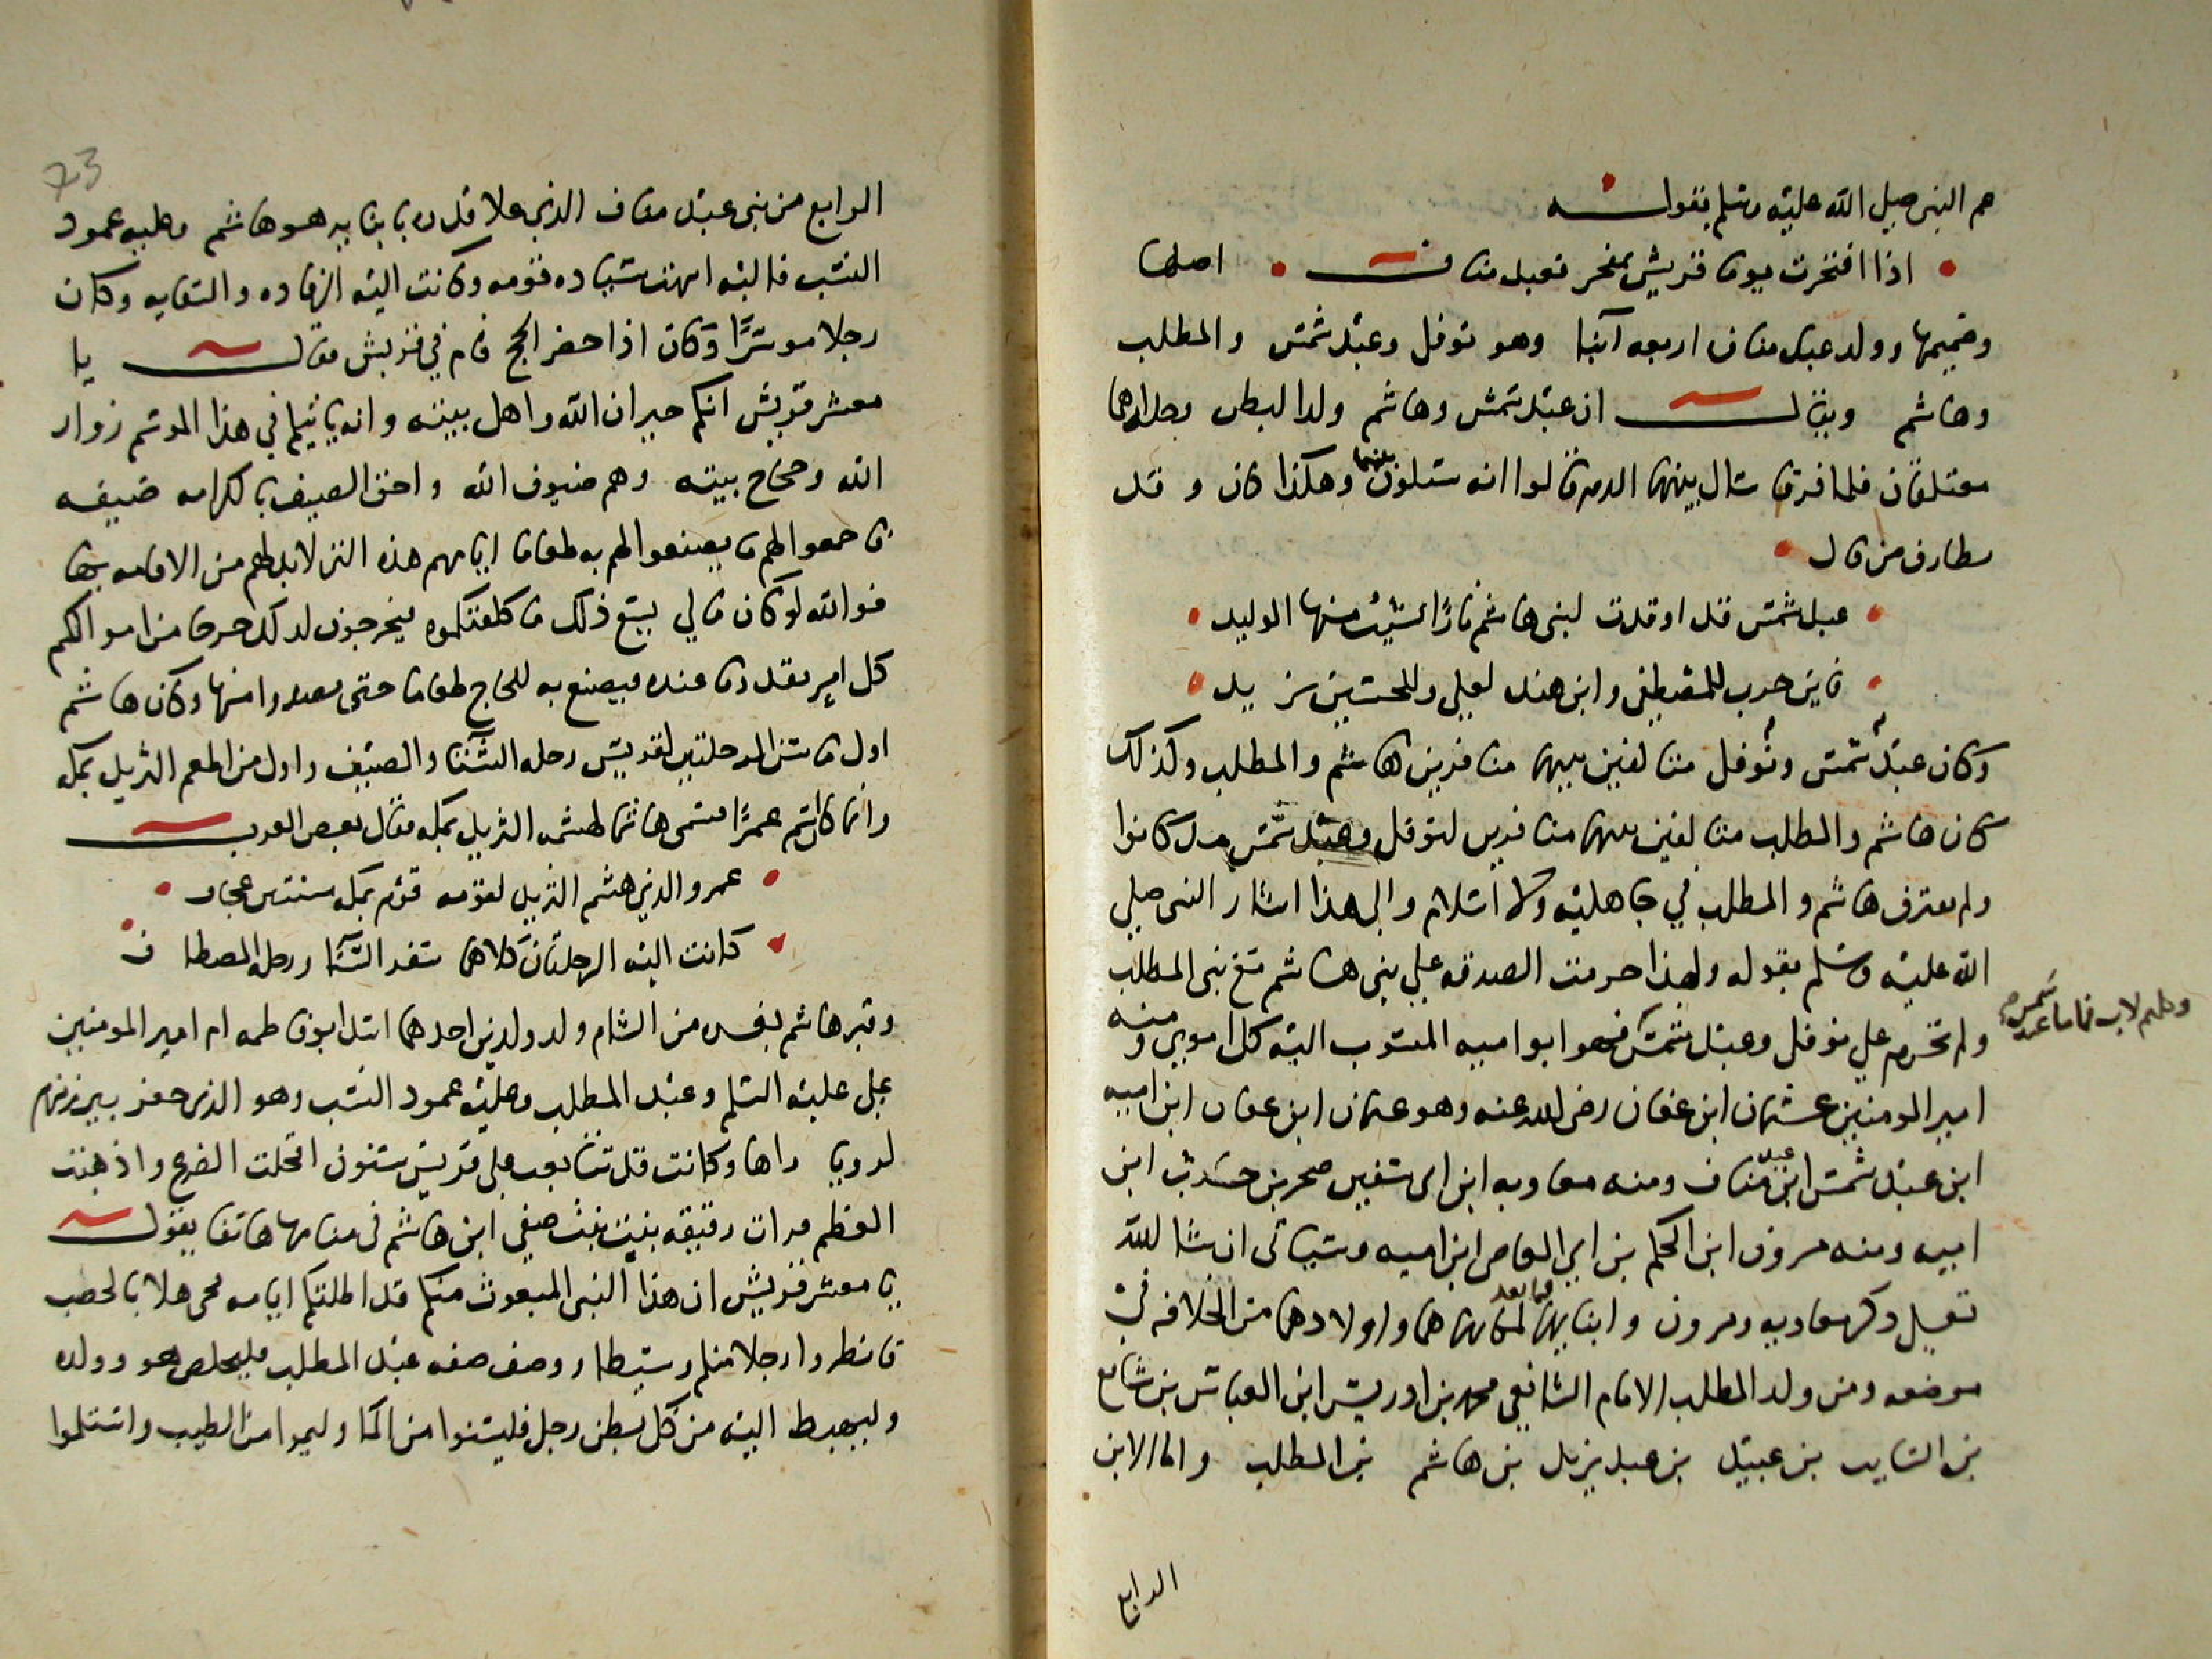 عم النبي صلى الله عليه وسلم بقوله
اذا افتخرت يوما قريش بمفخر فعبد مناف اصلها
وصميمها وولد عبد مناف اربعه آبنا وهو نوفل وعبد شمس والمطلب
وهاشم ويقال ان عبد شمس وهاشم ولدا لبطن وجلداهما
معتلقان فلما فرقا سال بينهما الدم قالوا انه ستكون بينهما وهكذا كان وقد
من قال
عبد شمس قد اوقدت لبني هاشم نارا يشيب منها الوليد
فابن حرب للمصطفى وابن هند لعلي وللحسين يزيد
وكان عبد شمس ونوفل متالفين بينهما منافرين هاشم والمطلب وكذلك
كان هاشم والمطلب متالفين بينهما منافرين لنوفل وعبد شمس كانوا
ولم يفترق هاشم والمطلب في جاهليه ولا اسلام والى هذا اشار النبي صلى
الله عليه وسلم بقوله ولهذا حرمت الصدقه على بني هاشم مع بني المطلب
ولم تحرم على نوفل وعبد شمس فهو ابو اميه المنسوب اليه كل اموي ومنه
وكلهم لاب فاما عبد شمس
امير المومنين عثمان ابن عفان رضى الله عنه وهو عثمان ابن عفان ابن اميه
ابن عبد شمس ابن عبد مناف ومنه معاويه ابن ابى سفين صخر بن حرب ابن
اميه ومنه مرون ابن الحكم بن ابي العاص ابن اميه وسياتى ان شا الله
ذكر معاويه ومرون وابنايهما فيما بعد واولادهما من الخلافه في
موضعه ومن ولد المطلب الامام الشافعي محمد بن ادريس ابن العباس بن شافع
بن السايب بن عبيد بن عبد يزيد بن هاشم بن المطلب واما الابن
الرابع
73
الرابع من بني عبد مناف الذي علا قدره هو هاشم وعليه عمود
النسب فاليه انتهت سياده قومه وكانت اليه الرفاده والسقايه وكان
رجلا موسرا وكان اذا حضر الحج قام في قريش فقال يا
معشر قريش انكم جيران الله واهل بيته وانه ياتيكم في هذا الموسم زوار
الله وحجاج بيته وهم ضيوف الله واحق الضيف بالكرامه ضيفه
فاجمعوا لهم ما يصنعوا لهم به طعاما ايامهم هذه التي لابد لهم من الاقامه بها
فوالله لو كان مالي يسع ذلك ما كلفتكموه فيخرجون لذلك خرجا من اموالكم
كل امر بقدر ما عنده فيصنع به للحاج طعاما حتى يصدروا منها وكان هاشم
اول من سن الرحلتين لقريش رحله الشتا والصيف واول من اطعم الثريد بمكه
وانما كان اسم عمرا فسمى هاشما لهشمه الثريد بمكه فقال بعض العرب
عمرو الذي هشم الثريد لقومه قوم بمكه مسنتين عجاف
كانت اليه الرحلتان كلاهما سفر الشتا ورحله المصطاف
وقبر هاشم بغزه من الشام ولد ولدين احدهما اسد ابو فاطمه ام امير المومنين
على عليه السلم وعبد المطلب وعليه عمود النسب وهو الذى حفر بير زمزم
لرويا راها وكانت قد تتابعت على قريش سنون اقحلت الضرع واذهبت
العظم فرات رقيقه بنت صيفي ابن هاشم فى منامها هاتفا يقول
يا معشر قريش ان هذا النبى المبعوث منكم قد اظلتكم ايامه فحى هلا بالخصب
فانظروا رجلا منكم وسيطا ووصف صفه عبد المطلب فليخلص هو وولده
وليهبط اليه من كل بطن رجل فليشنوا من الما وليمسوا من الطيب واستلموا